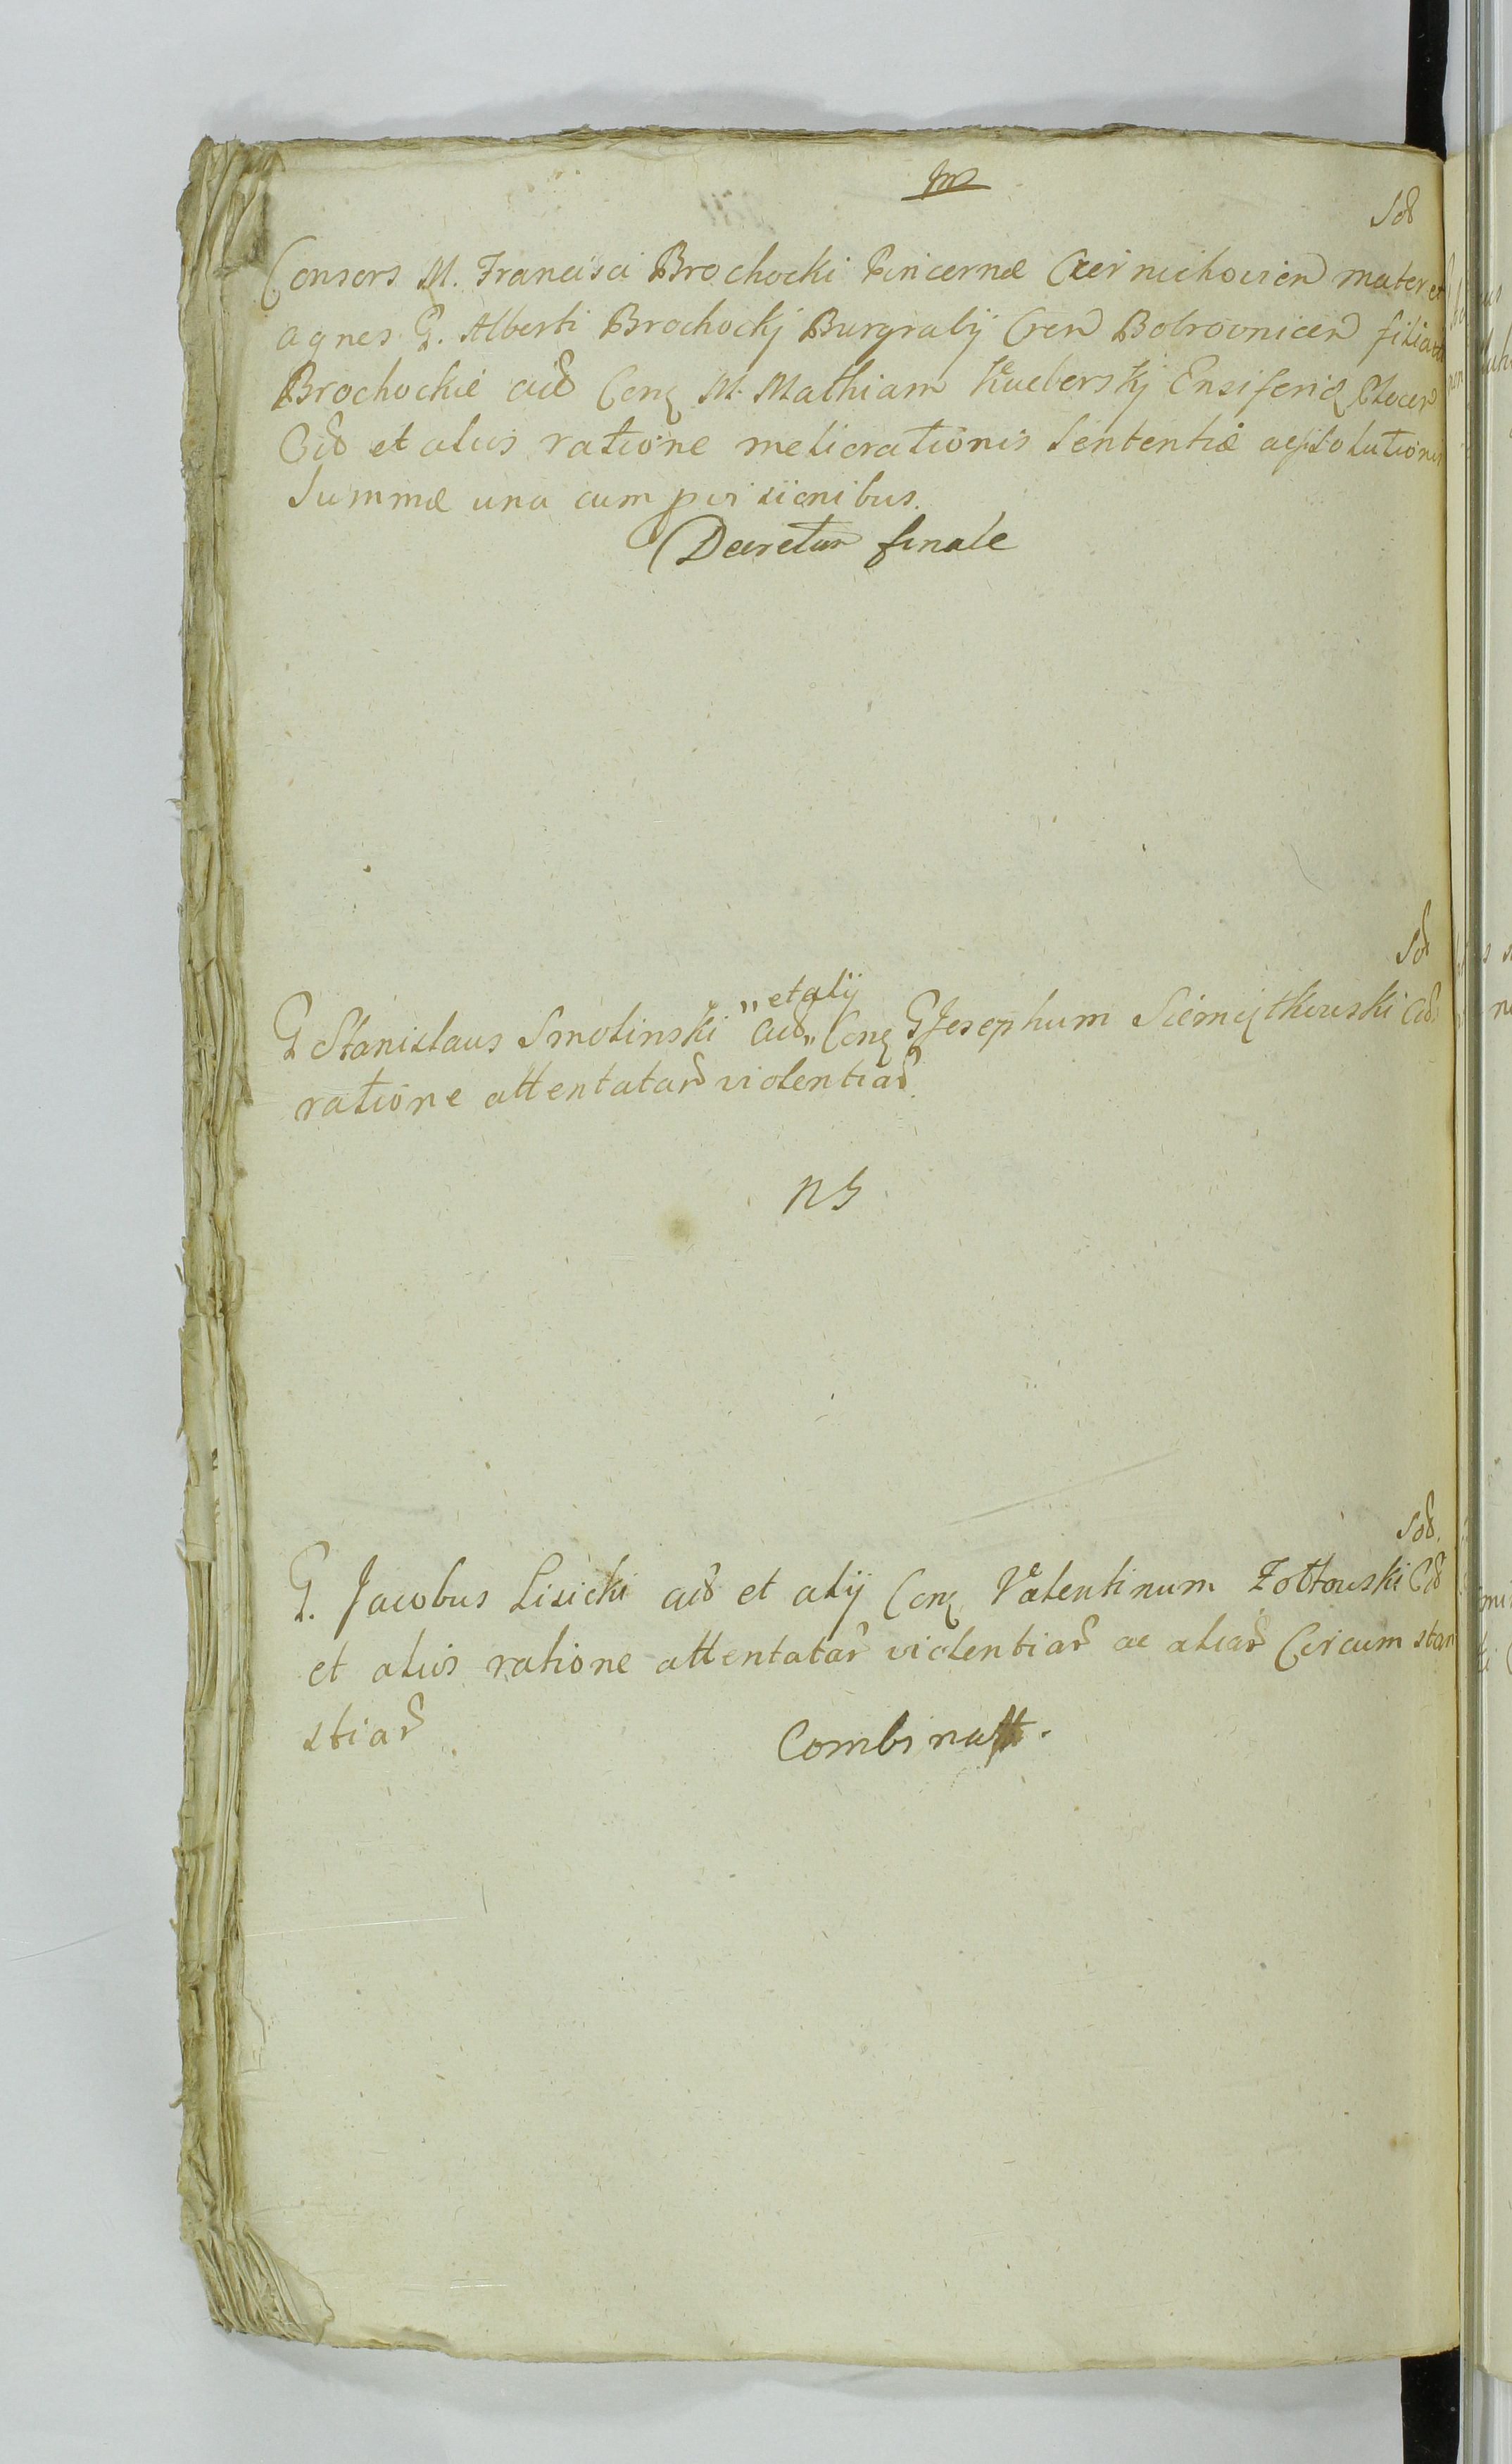 Sd
Consors M. Francisci Brochocki Pincernæ Czerniechovien mater et
Agnes G. Alberti Brochockj Burgrabij Cren Bobrovnicen filia
Brochockie acd Conq M. Mathiam Enseferid Ploceñ
Cid et aliis ratione meliorationis Sententiæ
Summæ una cum provisionibus.
Decretum finale
Sd
et alij
G Stanislaus Smolinski acd Conq G Josephum Siemiątkowski Cid
ratione attentatar violentiar.
NS
Sd.
G. Jacobus Lisicki acd et alij Conq Valentinum Zołtowski Cid
et aliis ratione attentatar violentiar ac aliar Circumstan
stiar
Combinatt.